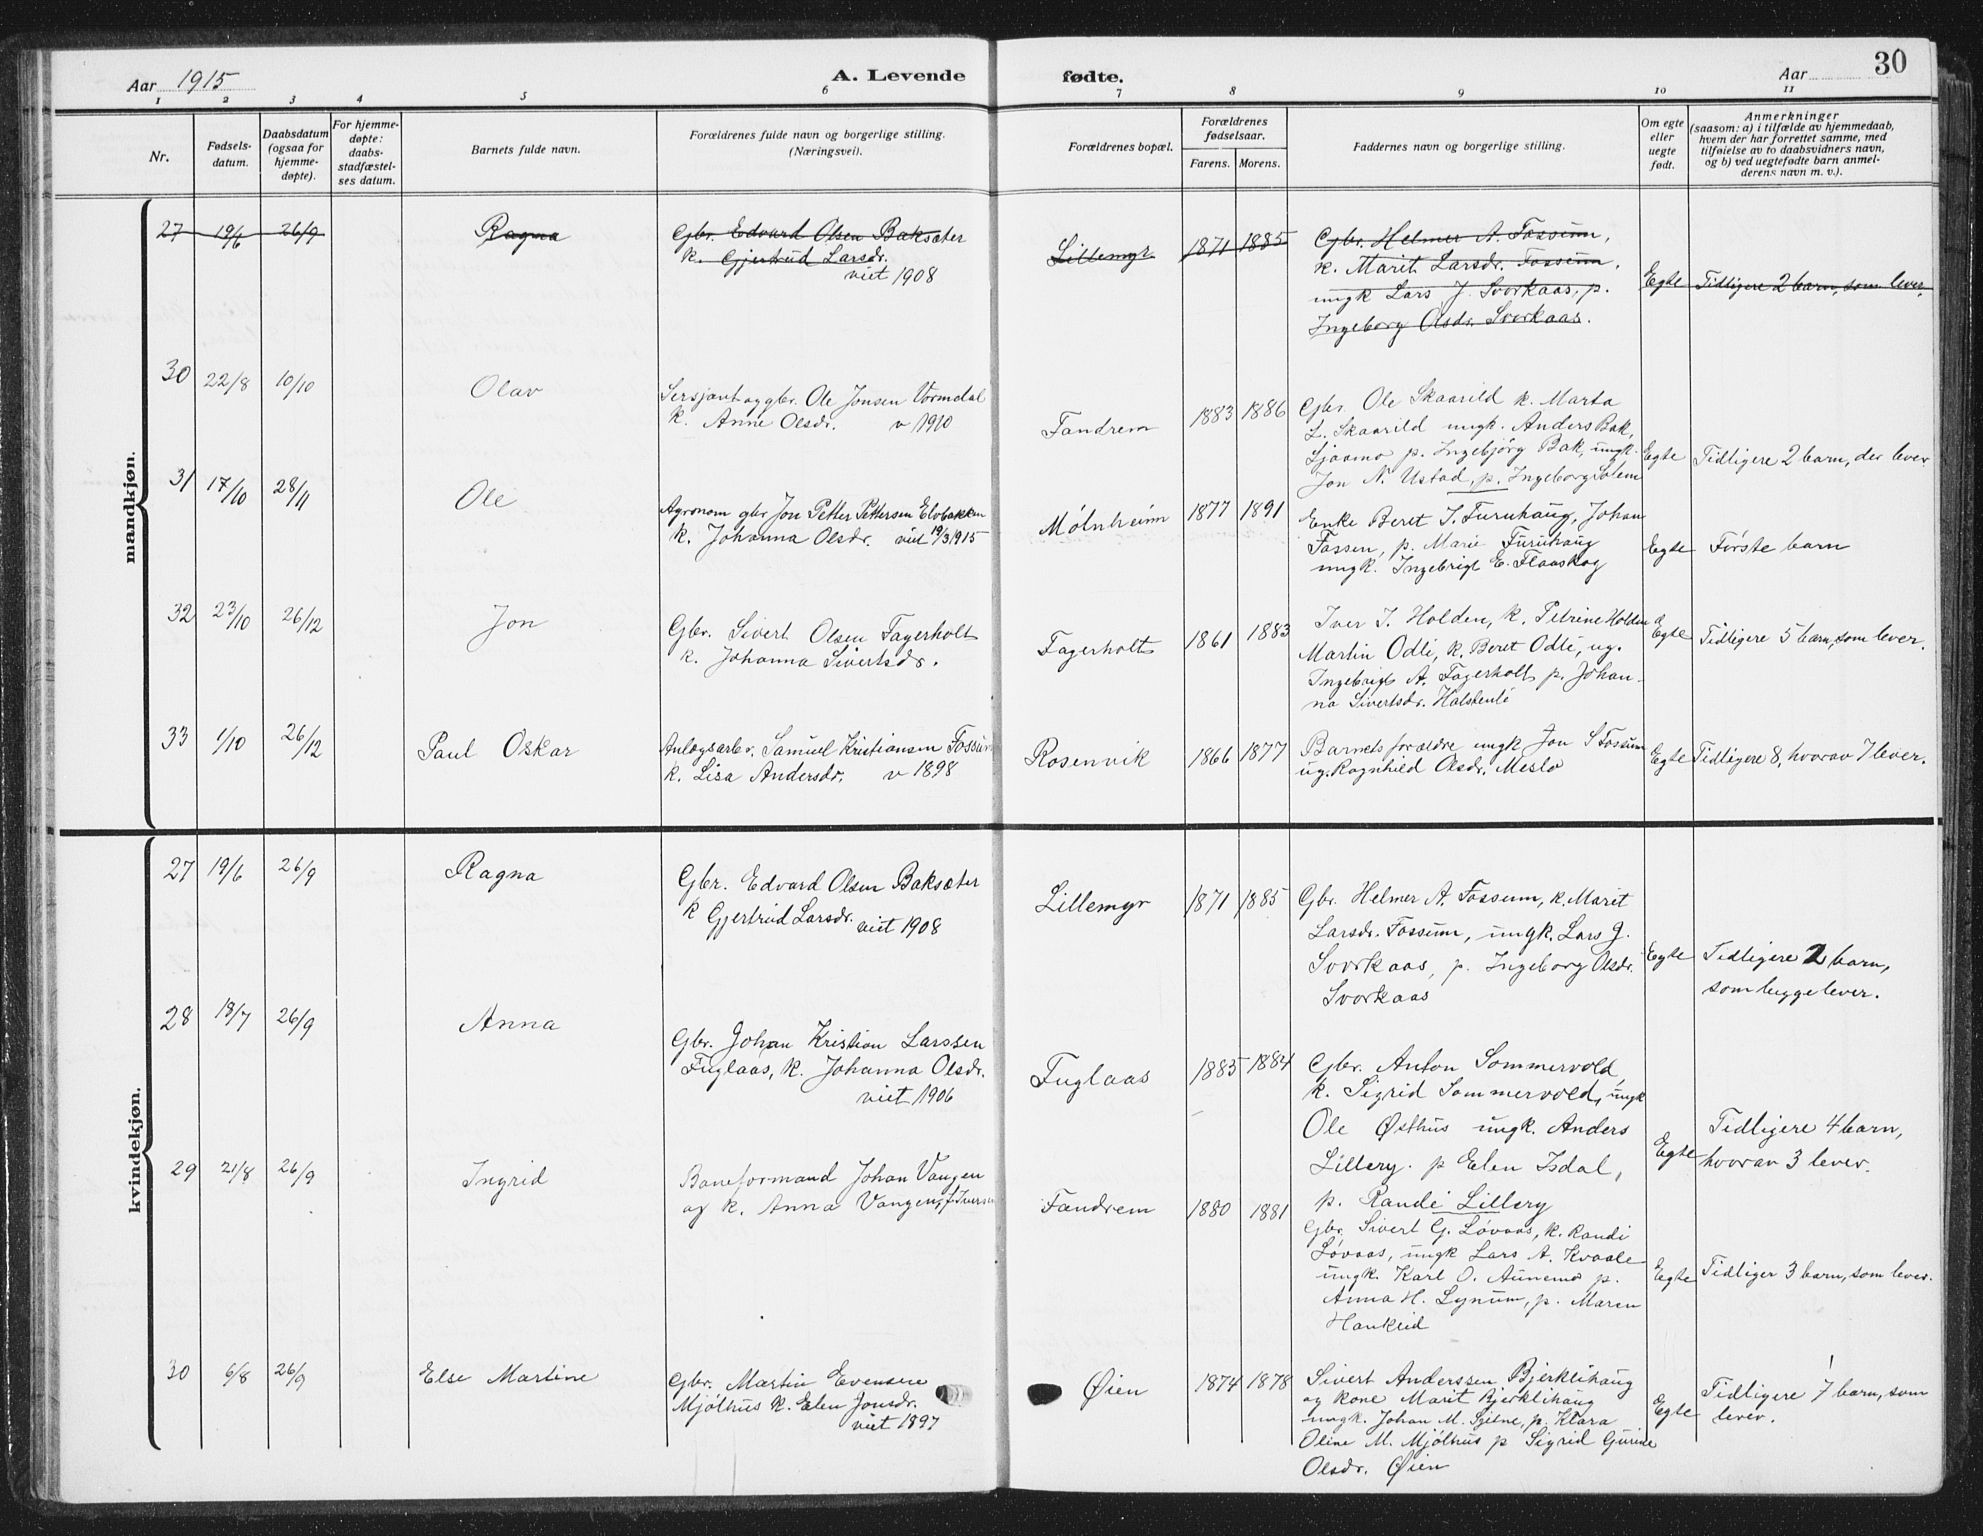 Aar 1915
A. Levende fødte.
Aar 30
1 2 3 4 5 6 7 8 9 10 11
Nr.
Fødsels-
datum.
Daabsdatum
(ogsaa for
hjemme-
døpte).
For hjemme-
døpte:
daabs-
stadfæstel-
ses datum.
Barnets fulde navn.
Forældrenes fulde navn og borgerlige stilling.
(Næringsvei).
Forældrenes bopæl.
Forældrenes
fødselsaar.
Farens. Morens.
Faddernes navn og borgerlige stilling.
Om egte
eller
uegte
født.
Anmerkninger
(saasom: a) i tilfælde av hjemmedaab,
hvem der har forrettet samme, med
tilføielse av to daabsvidners navn,
og b) ved uegtefødte barn anmel-
derens navn m. v.).
mandkjøn.
27 19/6 26/9 Ragna
Gbr. Edvard Olsen Baksæter
k. Gjertrud Larsdr.
viet 1908
Lillemyr 1871 1885
Gbr. Helmer A. Fossum,
k. Marit Larsdr. Fossum,
ungk Lars J. Svorkaas, p.
Ingeborg Olsdr. Svorkaas.
Egte Tidligere 2 barn, som lever.
30 22/8 10/10 Olav
Sersjant og gbr. Ole Jonsen Vormdal
k. Anne Olsdr. v 1910
Fandrem 1883 1886
Gbr. Ole Skaarild k. Marta
L. Skaarild ungk. Anders Bak,
Sjaamo p. Ingebjörg Bak, ungk.
Jon N. Ustad, p. Ingeborg Solem
Egte Tidligere 2 barn, der lever
31 17/10 28/11 Ole
Agronom gbr Jon Petter Pettersen Elvbakken
k. Johanna Olsdr. viet 19/3 1915
Mölnheim 1877 1891
Enke Beret I. Furuhaug, Johan
Fossen, p. Marie Furuhaug
ungk. Ingebrigt E. Flaaskog
Egte Förste barn
32 23/10 26/12 Jon
Gbr. Sivert Olsen Fagerholt
k. Johanna Sivertsdr.
Fagerholt 1861 1883
Iver I. Holden, k. Petrine Holden
Martin Odli, k. Beret Odli, ug.
Ingebrigt A. Fagerholt p. Johan-
na Sivertsdr. Halstenli
Egte Tidligere 5 barn, som lever.
33 1/10 26/12 Paul Oskar
Anlægsarb. Samuel Kristiansen Fossum
k. Lisa Andersdr. v 1898
Rosenvik 1866 1877
Barnets forældre ungk Jon S Fossum
ug. Ragnhild Olsdr. Meslo
Egte Tidligere 8, hvorav 7 lever.
kvindekjøn.
27 19/6 26/9 Ragna
Gbr. Edvard Olsen Baksæter
k Gjertrud Larsdr. viet 1908
Lillemyr 1871 1885
Gbr. Helmer A. Fossum, k. Marit
Larsdr. Fossum, ungk. Lars J.
Svorkaas, p. Ingeborg Olsdr.
Svorkaas
Egte Tidligere 2 barn,
som begge lever.
28 18/7 26/9 Anna
Gbr. Johan Kristian Larssen
Fuglaas, k. Johanna Olsdr.
viet 1906
Fuglaas 1885 1884
Gbr. Anton Sommervold,
k. Sigrid Sommervold, ungk
Ole Østhus ungk. Anders
Lillery. p Elen Isdal,
p. Randi Lillery
Egte Tidligere 4 barn,
hvorav 3 lever.
29 21/8 26/9 Ingrid
Baneformand Johan Vangen
og k. Anna Vangen, f. Iversen
Fandrem 1880 1881
Gbr. Sivert G. Lövaas, k. Randi
Lövaas, ungk Lars A. Kvaale
ungk. Karl O. Aunemo p.
Anna H. Lynum, p. Maren
Haukeid
Egte Tidliger 3 barn, som lever.
30 6/8 26/9 Else Martine
Gbr. Martin Evensen
Mjölhus k. Elen Jonsdr.
viet 1897
Øien 1874 1878
Sivert Anderssen Bjerklihaug
og kone Marit Bjerklihaug
ungk. Johan M. p. Klara
Oline M. Mjölhus p Sigrid Gurine
Olsdr. Øien
Egte Tidligere 7 barn, som
lever.